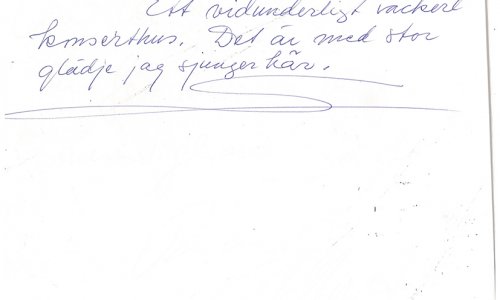 Ett vidunderligt vackert
konserthus. Det är med stor
glädje jag sjunger här.